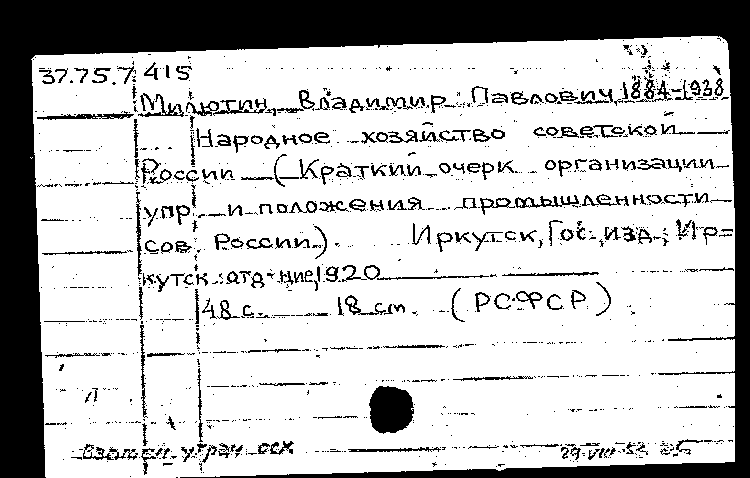 37.75.7 415
Милютин, Владимир Павлович, 1884-1938
Народное хозяйство советской
России (Краткий очерк организации
упр. и положения промышленности
сов. России). Иркутск, Гос. изд., Ир=
кутск. отд-ние, 1920
48 с. 18 cm. (РСФСР)
Взамен утрач осх
29 VIII 52